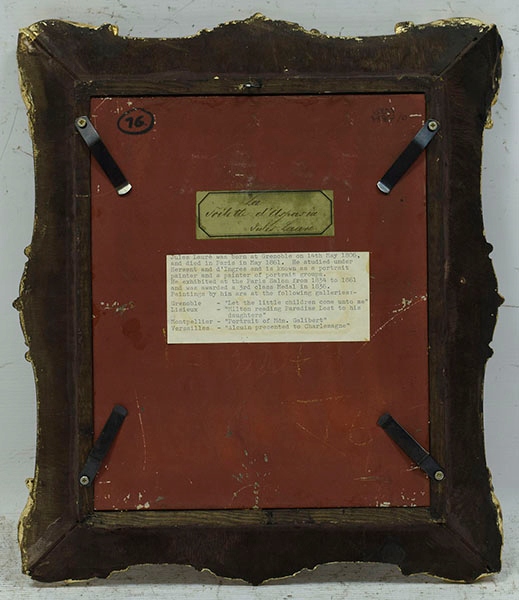 76.
La
Toilette d'Aspasie
Jules Laure
Jules Laure was born at Grenoble on 14th May 1806,
and died in Paris in May 1861. He studied under
Hersent and d'Ingres and is known as a portrait
painter and a painter of portrait groups.
He exhibited at the Paris Salon from 1834 to 1861
and was awarded a 3rd class Medal in 1836.
Paintings by him are at the following galleries:-
Grenoble - "Let the little children come unto me"
Lisieux - "Milton reading Paradise Lost to his
daughters"
Montpellier - "Portrait of Mdm. Galibert"
Versailles - "Alcuin presented to Charlemagne"